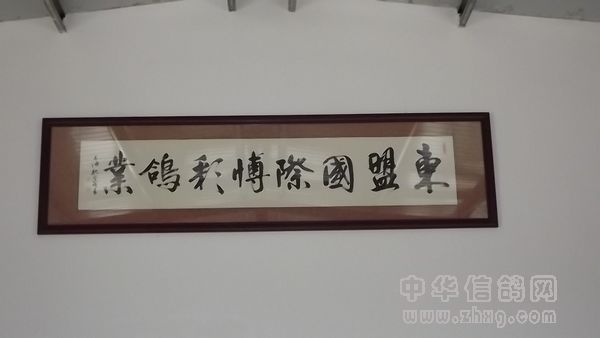 東盟國際博彩鴿業
中华信鸽网
www.zhxg.com